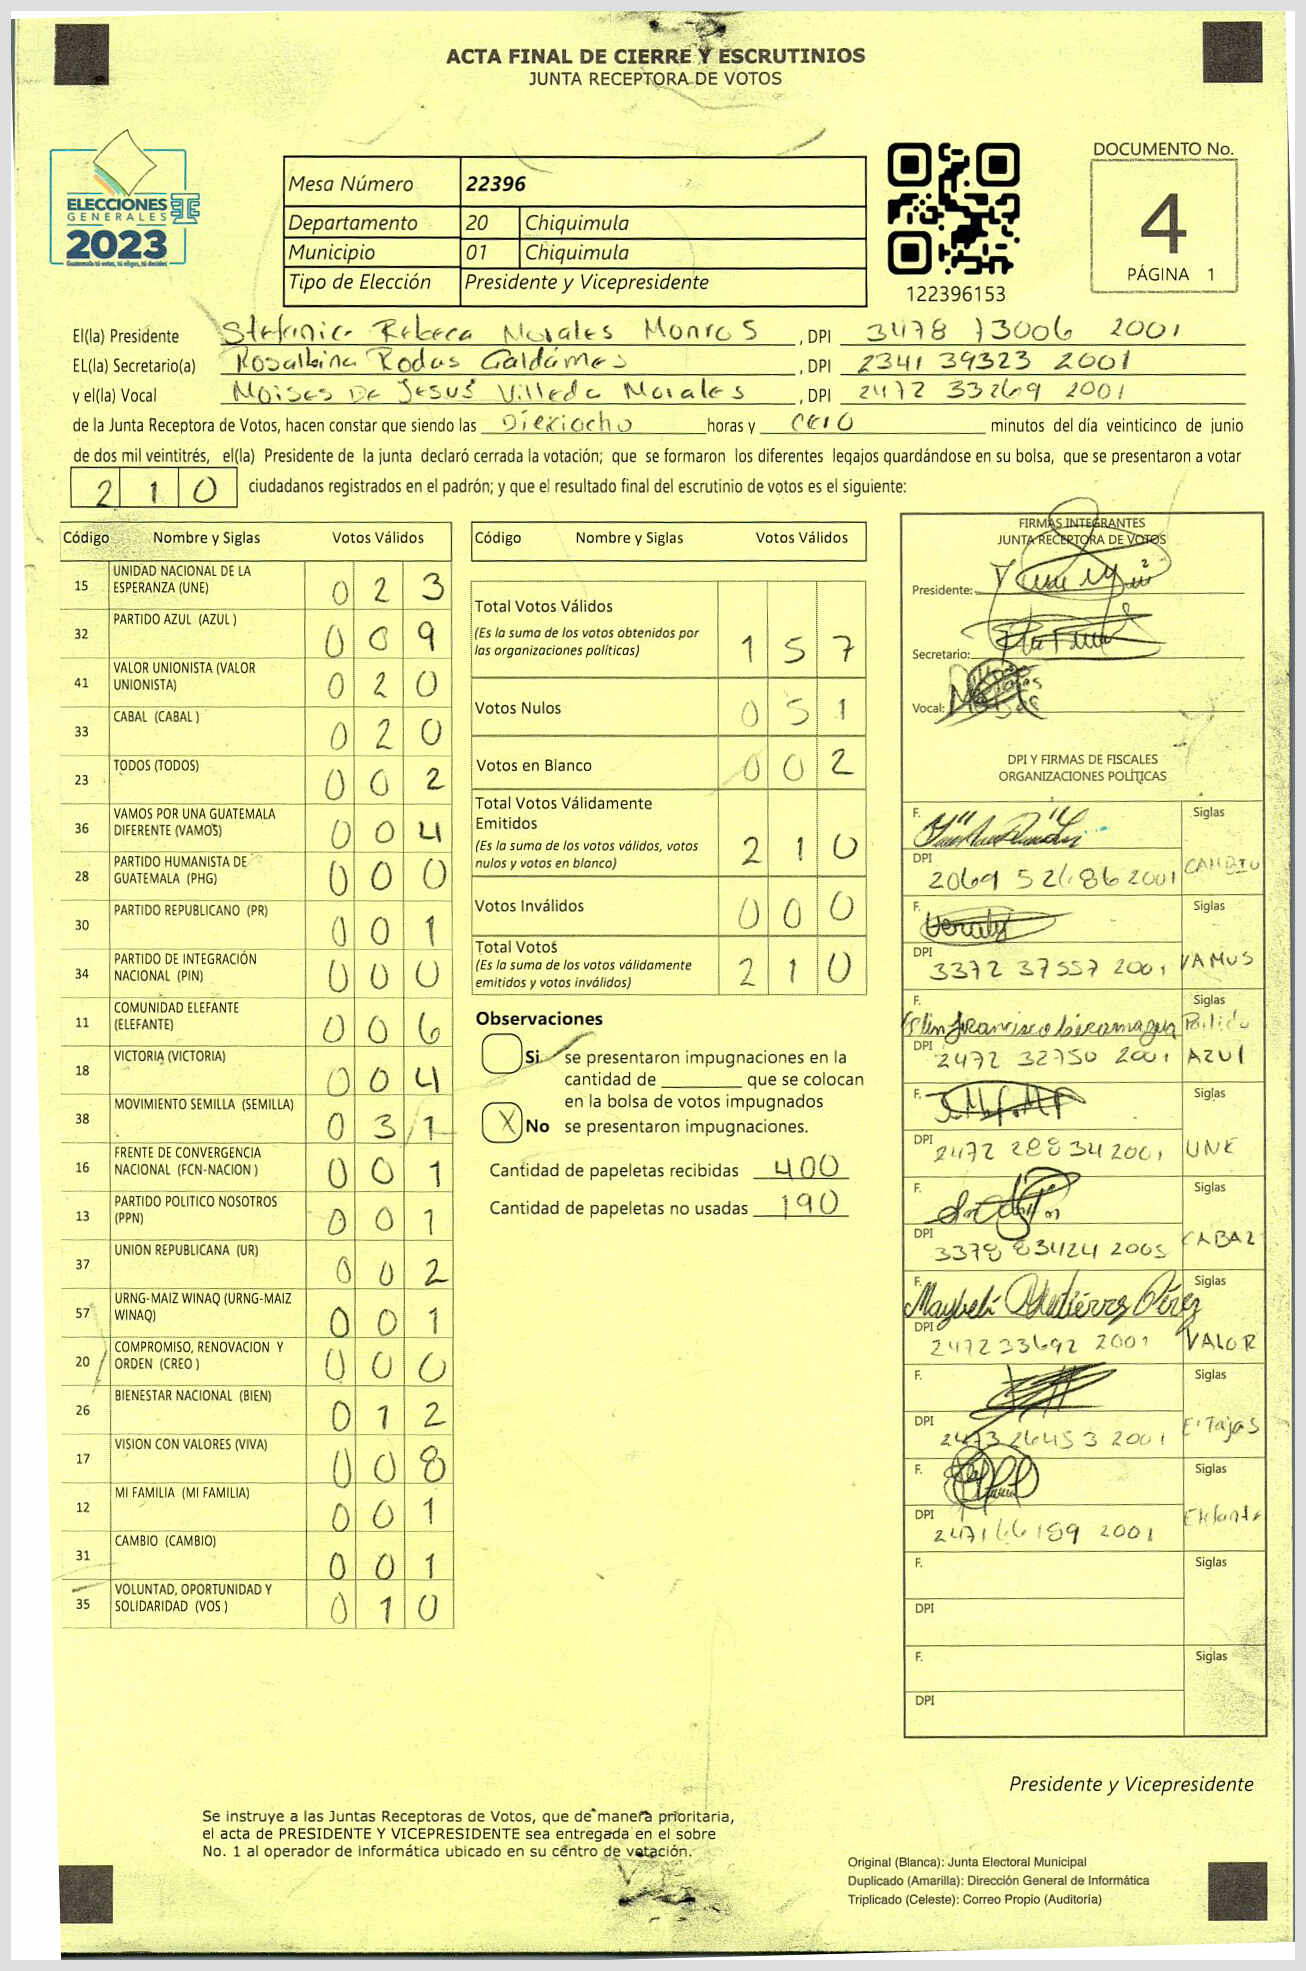 ACTA FINAL DE CIERRE Y ESCRUTINIOS
JUNTA RECEPTORA DE VOTOS
ELECCIONES
GENERALES
2023
Guatemala tú votas, tú eliges, tú decides
DOCUMENTO No.
4
PÁGINA 1
Mesa Número 22396
Departamento 20 Chiquimula
Municipio 01 Chiquimula
Tipo de Elección Presidente y Vicepresidente
122396153
El(la) Presidente Stefanica Rebeca Morales Monros, DPI 3478 73006 2001
EL(la) Secretario(a) Rosalbina Rodas Galdámes, DPI 2341 39323 2001
y el(la) Vocal Moises De Jesus Villeda Morales, DPI 2472 33269 2001
de la Junta Receptora de Votos, hacen constar que siendo las Dieciocho horas y cero minutos del día veinticinco de junio
de dos mil veintitrés, el(la) Presidente de la junta declaró cerrada la votación; que se formaron los diferentes legajos guardándose en su bolsa, que se presentaron a votar
210 ciudadanos registrados en el padrón; y que el resultado final del escrutinio de votos es el siguiente:
Código Nombre y Siglas Votos Válidos
15 UNIDAD NACIONAL DE LA ESPERANZA (UNE) 0 2 3
32 PARTIDO AZUL (AZUL ) 0 0 9
41 VALOR UNIONISTA (VALOR UNIONISTA) 0 2 0
33 CABAL (CABAL ) 0 2 0
23 TODOS (TODOS) 0 0 2
36 VAMOS POR UNA GUATEMALA DIFERENTE (VAMOS) 0 0 4
28 PARTIDO HUMANISTA DE GUATEMALA (PHG) 0 0 0
30 PARTIDO REPUBLICANO (PR) 0 0 1
34 PARTIDO DE INTEGRACIÓN NACIONAL (PIN) 0 0 0
11 COMUNIDAD ELEFANTE (ELEFANTE) 0 0 6
18 VICTORIA (VICTORIA) 0 0 4
38 MOVIMIENTO SEMILLA (SEMILLA) 0 3 1
16 FRENTE DE CONVERGENCIA NACIONAL (FCN-NACION ) 0 0 1
13 PARTIDO POLITICO NOSOTROS (PPN) 0 0 1
37 UNION REPUBLICANA (UR) 0 0 2
57 URNG-MAIZ WINAQ (URNG-MAIZ WINAQ) 0 0 1
20 COMPROMISO, RENOVACION Y ORDEN (CREO ) 0 0 0
26 BIENESTAR NACIONAL (BIEN) 0 1 2
17 VISION CON VALORES (VIVA) 0 0 8
12 MI FAMILIA (MI FAMILIA) 0 0 1
31 CAMBIO (CAMBIO) 0 0 1
35 VOLUNTAD, OPORTUNIDAD Y SOLIDARIDAD (VOS ) 0 1 0
Código Nombre y Siglas Votos Válidos
Total Votos Válidos
(Es la suma de los votos obtenidos por
las organizaciones políticas) 1 5 7
Votos Nulos 0 5 1
Votos en Blanco 0 0 2
Total Votos Válidamente
Emitidos
(Es la suma de los votos válidos, votos
nulos y votos en blanco) 2 1 0
Votos Inválidos 0 0 0
Total Votos
(Es la suma de los votos válidamente
emitidos y votos inválidos) 2 1 0
Observaciones
Si se presentaron impugnaciones en la
cantidad de ________ que se colocan
en la bolsa de votos impugnados
X No se presentaron impugnaciones.
Cantidad de papeletas recibidas 400
Cantidad de papeletas no usadas 190
FIRMAS INTEGRANTES
JUNTA RECEPTORA DE VOTOS
Presidente:
Secretario:
Vocal:
DPI Y FIRMAS DE FISCALES
ORGANIZACIONES POLÍTICAS
F. Siglas
DPI 2001 CAMBIO
F. Siglas
DPI 3372 37557 2001 VAMUS
F. Siglas
DPI 2472 32750 2001 Partido AZUL
F. Siglas
DPI 2472 28834 2001 UNE
F. Siglas
DPI 3378 83424 2005 CABAL
F. Maybelí Gutiérrez Pérez Siglas
DPI 2472 33692 2001 VALOR
F. Siglas
DPI 2473 26453 2001
F. Siglas
DPI 2471 66189 2001 Elefante
F. Siglas
DPI
F. Siglas
DPI
Presidente y Vicepresidente
Se instruye a las Juntas Receptoras de Votos, que de manera prioritaria,
el acta de PRESIDENTE Y VICEPRESIDENTE sea entregada en el sobre
No. 1 al operador de informática ubicado en su centro de votación.
Original (Blanca): Junta Electoral Municipal
Duplicado (Amarilla): Dirección General de Informática
Triplicado (Celeste): Correo Propio (Auditoría)